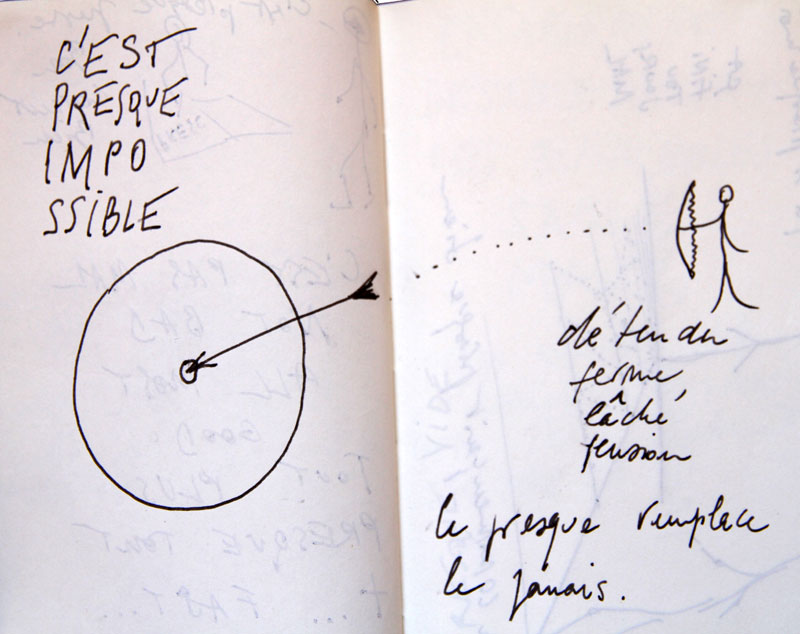 C'EST
PRESQUE
IMPO
SSIBLE
détendu
ferme,
lâché
tension
le presque remplace
le jamais.